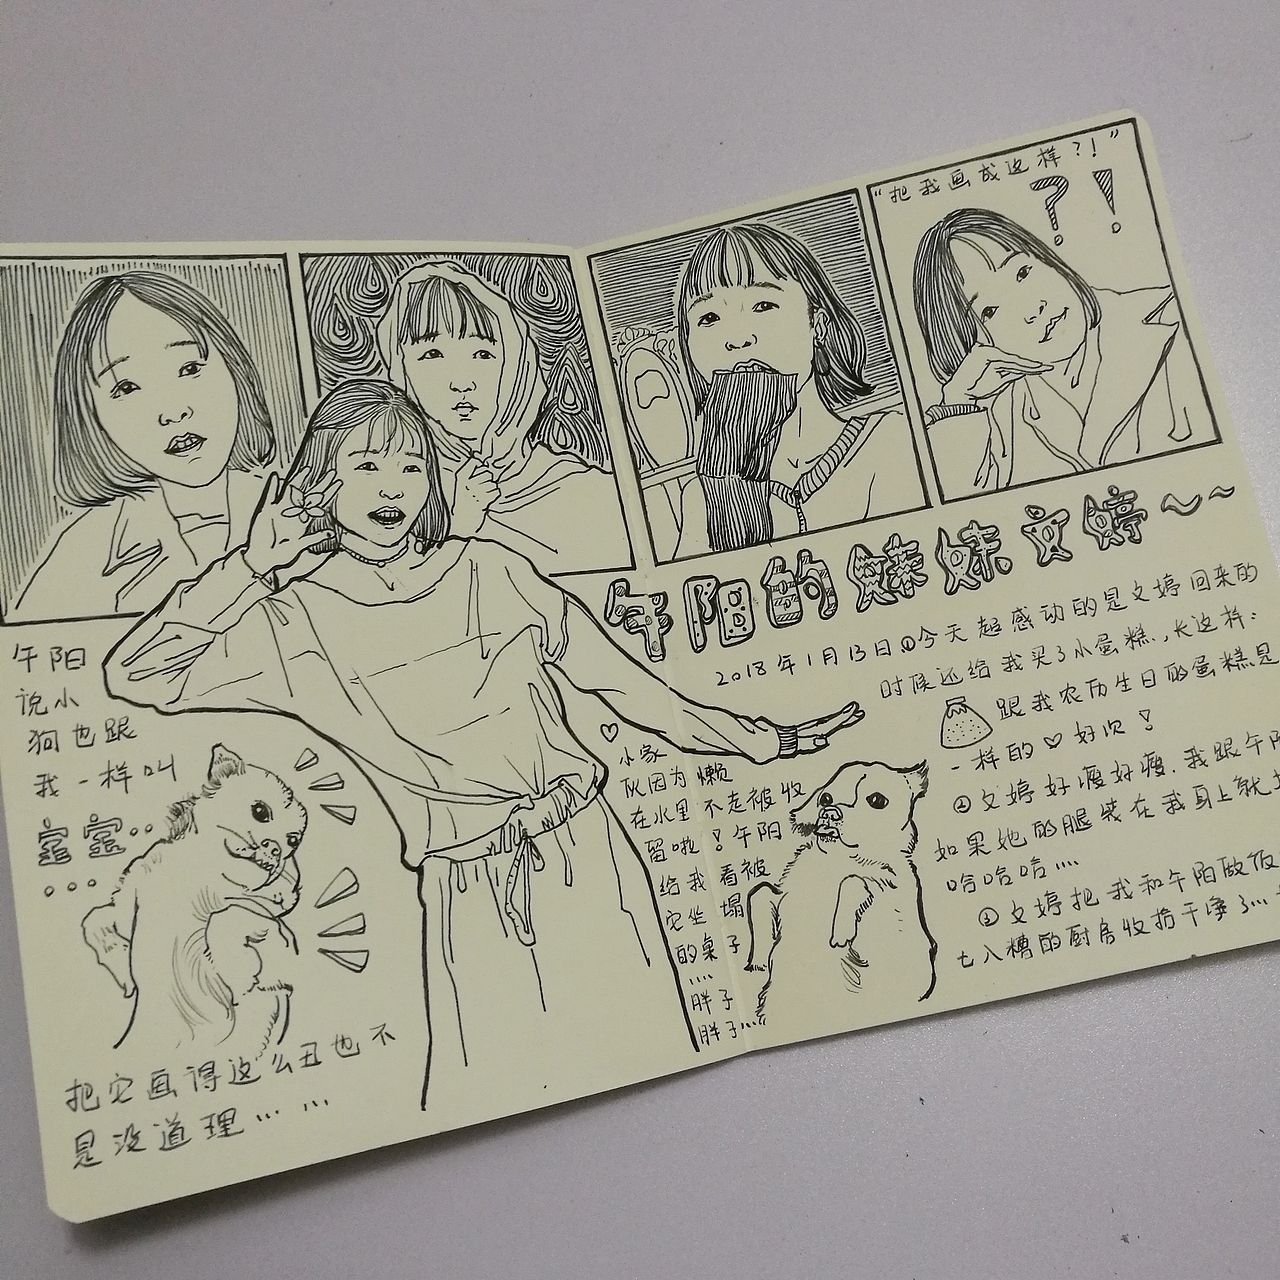 “把我画成这样?!”
?!
午阳的妹妹文婷～～
2018年1月13日①今天超感动的是文婷回来的
时候还给我买了小蛋糕,长这样:
跟我农历生日的蛋糕是
一样的♡好吃!
②文婷好瘦好瘦.我跟午阳
如果她的腿装在我身上就
哈哈哈....
③文婷把我和午阳做饭
七八糟的厨房收拾干净了...
午阳
说小
狗也跟
我一样叫
室室..
...
♡
小家
伙因为懒
在水里不走被收
留啦!午阳
给我看被
它坐塌
的桌子
....
胖子
胖子...
把它画得这么丑也不
是没道理... ...